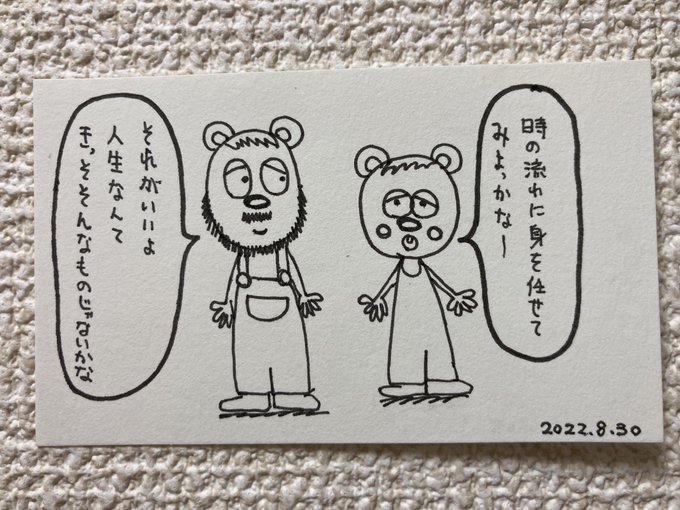 時の流れに身を任せて
みよっかなー
それがいいよ
人生なんて
きっそそんなものじゃないかな
2022.8.30